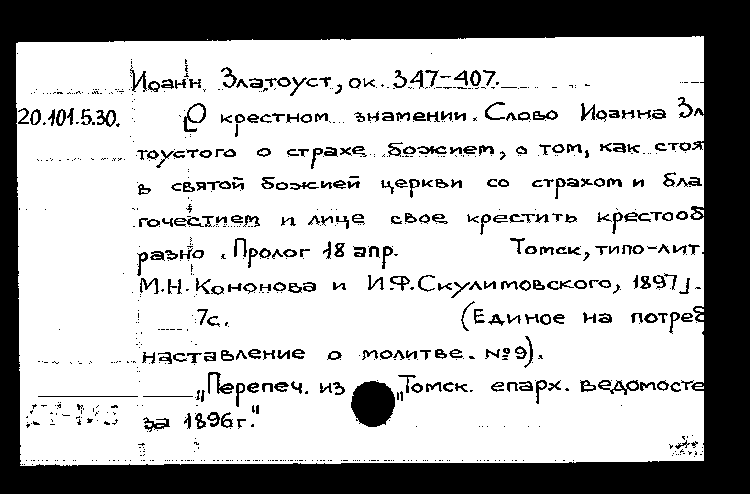 Иоанн Златоуст, ок. 347-407.
20.101.5.30. [О крестном знамении. Слово Иоанна Зл
тоустого о страхе божием, о том, как стоя
в святой божией церкви со страхом и бла
гочестием и лице свое крестить крестооб
разно. Пролог 18 апр. Томск, типо-лит.
М.Н. Кононова и И.Ф. Скулимовского, 1897].
7с. (Единое на потреб
наставление о молитве. №9).
„Перепеч. из „Томск. епарх. ведомосте
за 1896г."